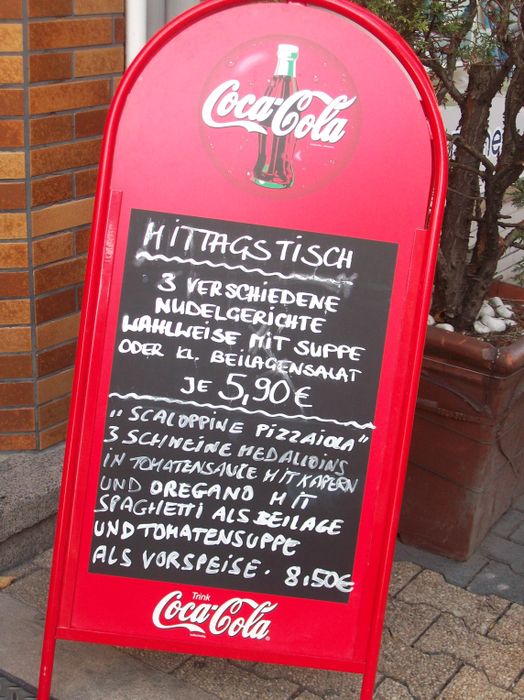 Coca-Cola
MITTAGSTISCH
3 VERSCHIEDENE
NUDELGERICHTE
WAHLWEISE MIT SUPPE
ODER KL. BEILAGENSALAT
JE 5,90 €
„SCALOPPINE PIZZAIOLA"
3 SCHWEINE MEDALLOINS
IN TOMATENSAUCE MIT KAPERN
UND OREGANO MIT
SPAGHETTI ALS BEILAGE
UND TOMATENSUPPE
ALS VORSPEISE. 8,50€
Trink
Coca-Cola